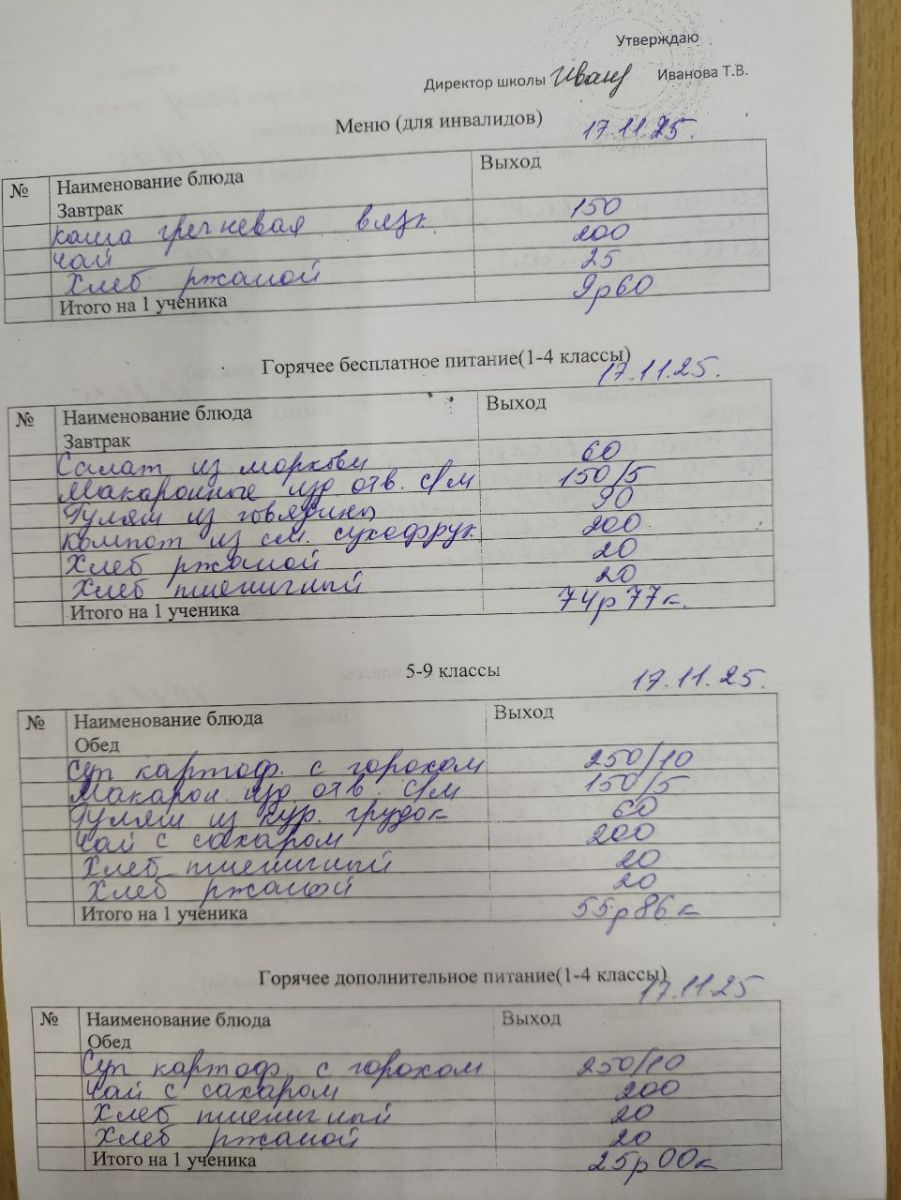 Утверждаю
Директор школы Иванова Т.В.
Меню (для инвалидов) 17.11.25.
№ Наименование блюда Выход
Завтрак
Каша гречневая вязк 150
Чай 200
Хлеб ржаной 25
Итого на 1 ученика 9р60
Горячее бесплатное питание(1-4 классы) 17.11.25.
№ Наименование блюда Выход
Завтрак
Салат из моркови 60
Макаронные изд. отв. с/м 150/5
Гуляш из говядины 90
Компот из см. сухофрук. 200
Хлеб ржаной 20
Хлеб пшеничный 20
Итого на 1 ученика 74р77к.
5-9 классы 17.11.25.
№ Наименование блюда Выход
Обед
Суп картоф. с горохом 250/10
Макарон. изд. отв. с/м 150/5
Гуляш из кур. грудок 60
Чай с сахаром 200
Хлеб пшеничный 20
Хлеб ржаной 20
Итого на 1 ученика 55р86к
Горячее дополнительное питание(1-4 классы) 17.11.25
№ Наименование блюда Выход
Обед
Суп картоф. с горохом 250/10
Чай с сахаром 200
Хлеб пшеничный 20
Хлеб ржаной 20
Итого на 1 ученика 25р00к